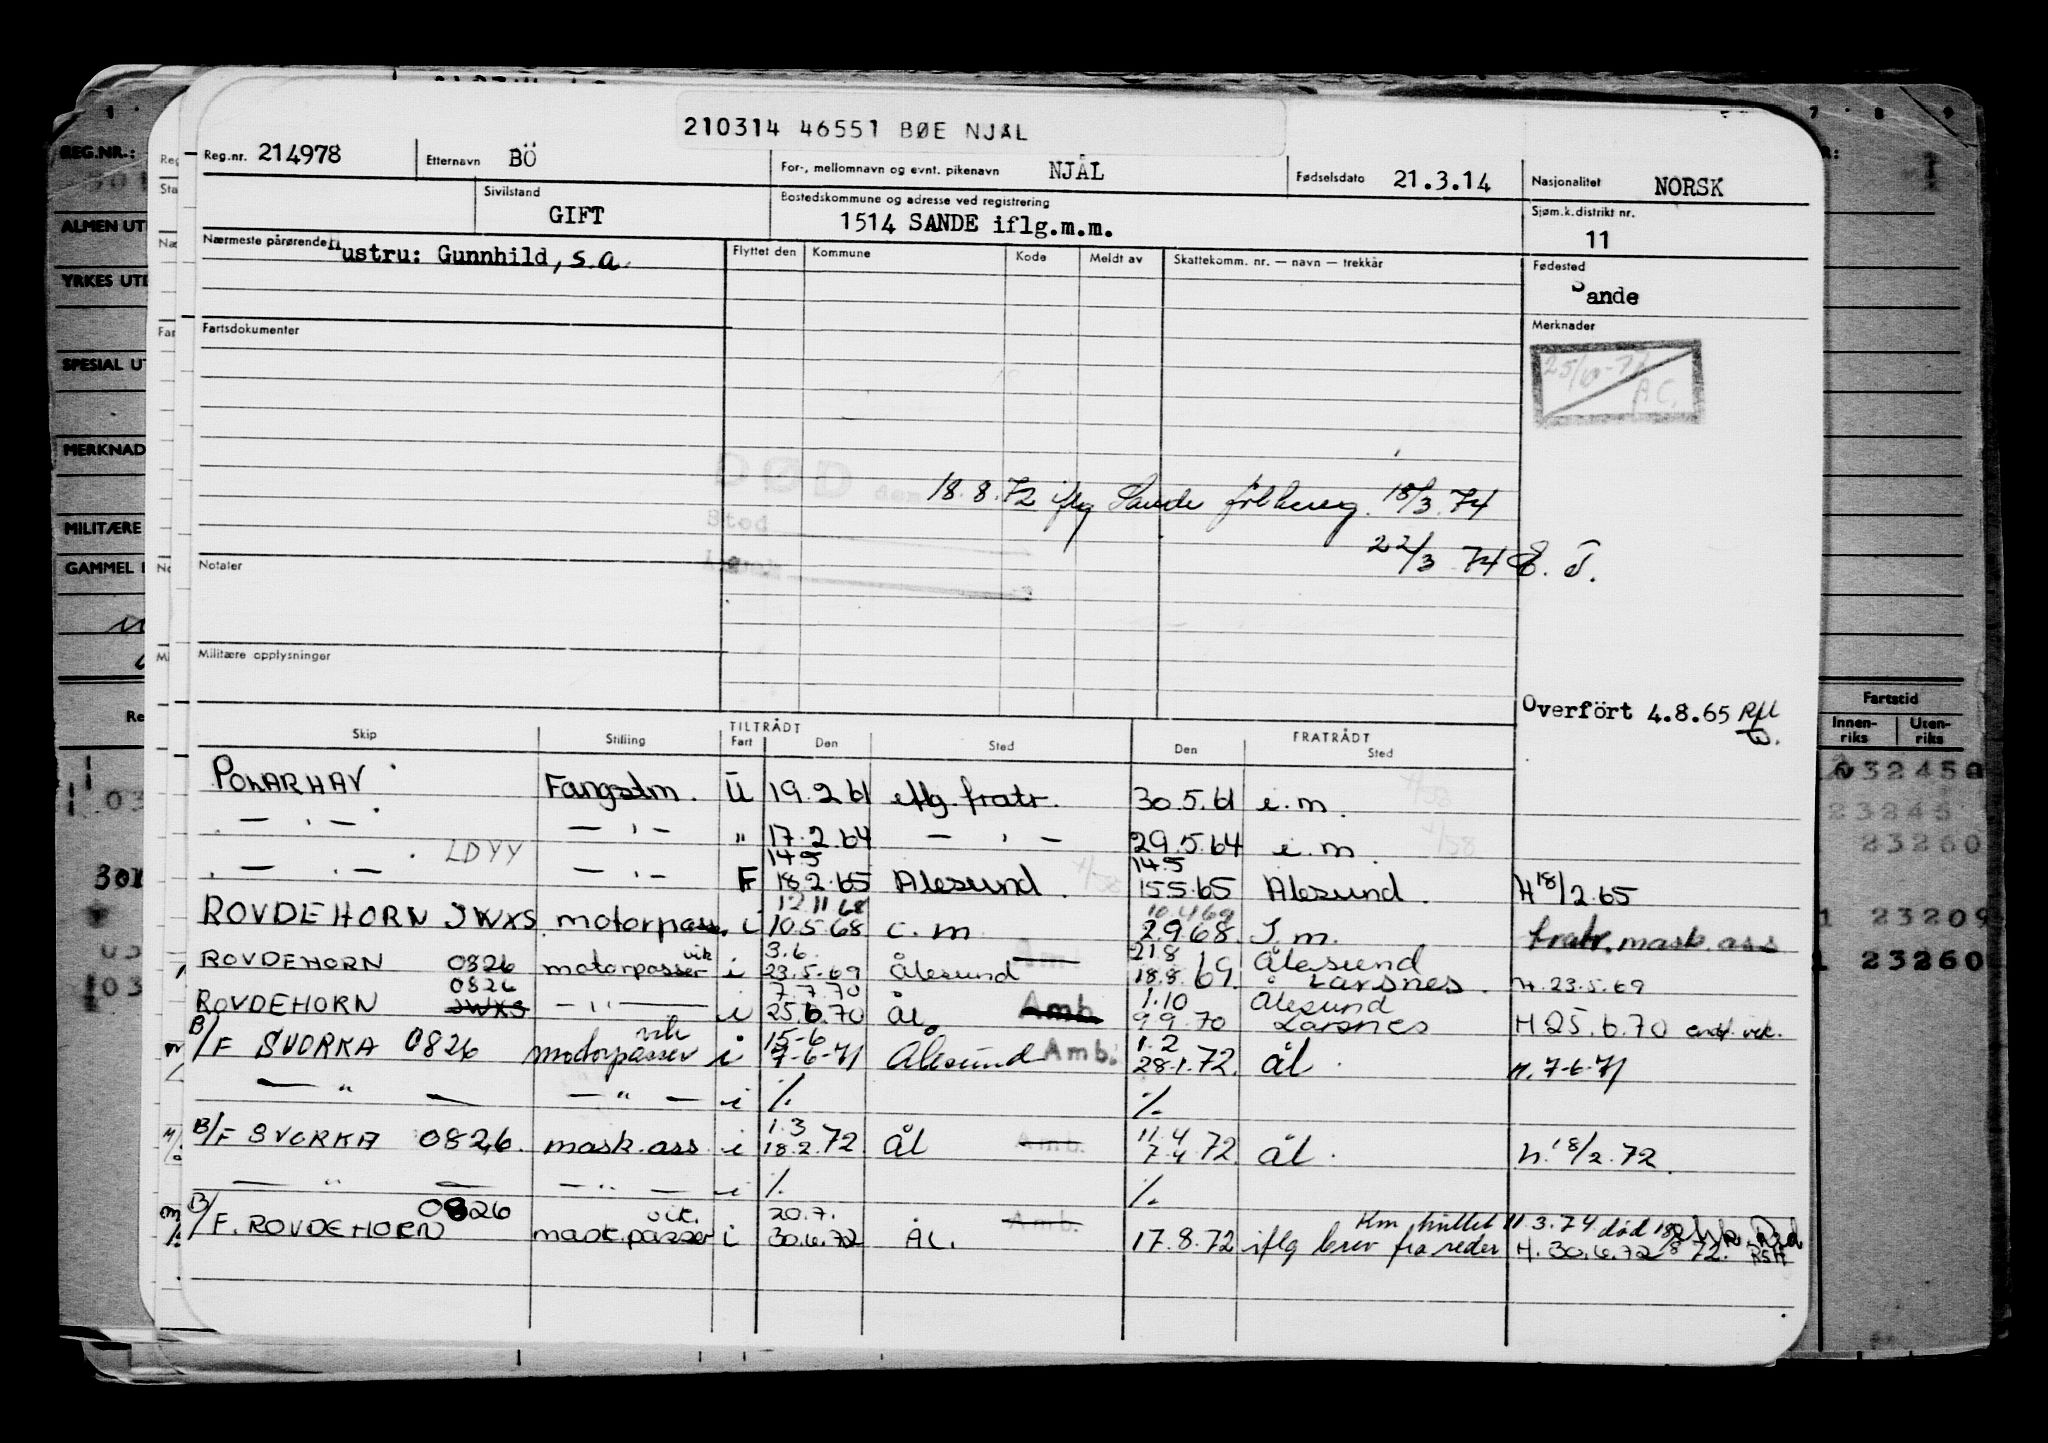 210314 46551 BØE NJÅL
Reg.nr. 214978 Etternavn BÖ For-, mellomnavn og evnt. pikenavn NJÅL Fødselsdato 21.3.14 Nasjonalitet NORSK
Sivilstand GIFT Bostedskommune og adresse ved registrering 1514 SANDE iflg.m.m. Sjøm.k.distrikt nr. 11
Nærmeste pårørende Hustru: Gunnhild, s.a. Flyttet den Kommune Kode Meldt av Skattekomm. nr. — navn — trekkår Fødested Sande
Fartsdokumenter Merknader
A C.
DØD den 18.8.72 iflg Sande 18/3.74
Sted
22/3 74 E. T.
Notaler
Militære opplysninger
Overfört 4.8.65
Skip Stilling TILTRÅDT Fart Den Sted FRATRÅDT Den Sted
POLARHAV Fangstm. U 19.2.61 iflg. fratr. 30.5.61 i.m.
— " — — " — " 17.2.64 — " — 29.5.64 i.m.
14.5 14.5
— " — LDYY — " — F 18.2.65 Ålesund 15.5.65 Ålesund. H 18/2.65
12.11 68 10.4 69
ROVDEHORN JWXS. motorpass. i 10.5.68 i.m. 2.9.68. I.m. fratr. mask.ass
vik 3.6. 21.8 Ålesund
ROVDEHORN 0826 motorpasser i 23.5.69 Ålesund 18.8.69. Larsnes. H.23.5.69
0826 7.7.70 1.10 Ålesund
ROVDEHORN JWXS — " — i 25.6.70 ÅL Amb. 9.9.70 Larsnes H 25.6.70 vik.
vik 15-6 1.2
B/F SVORKA 0826 motorpasser i 7-6-71 Ålesund Amb. 28.1.72. Ål. H. 7-6-71
— " — — " — i % %
1.3 11.4
B/F SVORKA 0826. mask.ass i 18.2.72 Ål Amb. 7.4.72. Ål. H. 18/2.72.
— " — — " — i % %
0826 vik. 20.7. Amb. 11.3.74 død
B/F. ROVDEHORN mask.passer i 30.6.72 ÅL. 17.8.72 iflg brev fra reder H. 30.6.72
REG.NR.:
ALMEN UT
YRKES UTD
SPESIAL UT
MERKNAD
MILITÆRE
GAMMEL
Fartstid
Innen-riks Uten-riks
32450
23245
23260
23209
23260